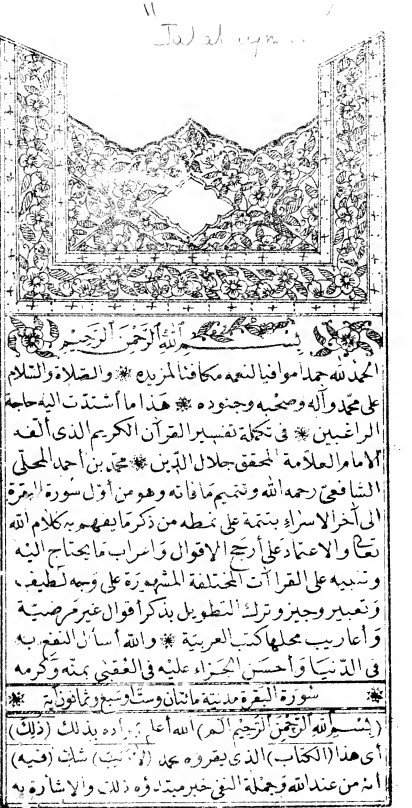 بِسْمِ اللهِ الرَّحْمٰنِ الرَّحِيمِ
الحمد لله حمدا موافيا لنعمه مكافئا لمزيده * والصلاة والسلام
على محمد وآله وصحبه وجنوده * هذا ما اشتدت اليه حاجة
الراغبين * فى تكملة تفسير القرآن الكريم الذى ألفه
الامام العلامة المحقق جلال الدين * محمد بن أحمد المحلى
الشافعى رحمه الله وتتميم ما فاته وهو من أول سورة البقرة
الى آخر الاسراء بتتمة على نمطه من ذكر ما يفهم به كلام الله
تعالى والاعتماد على أرجح الاقوال واعراب ما يحتاج اليه
وتنبيه على القراآت المختلفة المشهورة على وجه لطيف
وتعبير وجيز وترك التطويل بذكر أقوال غير مرضية
وأعاريب محلها كتب العربية * والله أسأل النفع به
فى الدنيا وأحسن الجزاء عليه فى العقبى بمنه وكرمه
سورة البقرة مدنية مائتان وست أو سبع وثمانون آية
(بسم الله الرحمن الرحيم الم) الله أعلم بمراده بذلك (ذلك)
أى هذا (الكتاب) الذى يقرؤه محمد (لا ريب) شك (فيه)
أنه من عند الله وجملة النفى خبر مبتدؤه ذلك والاشارة به